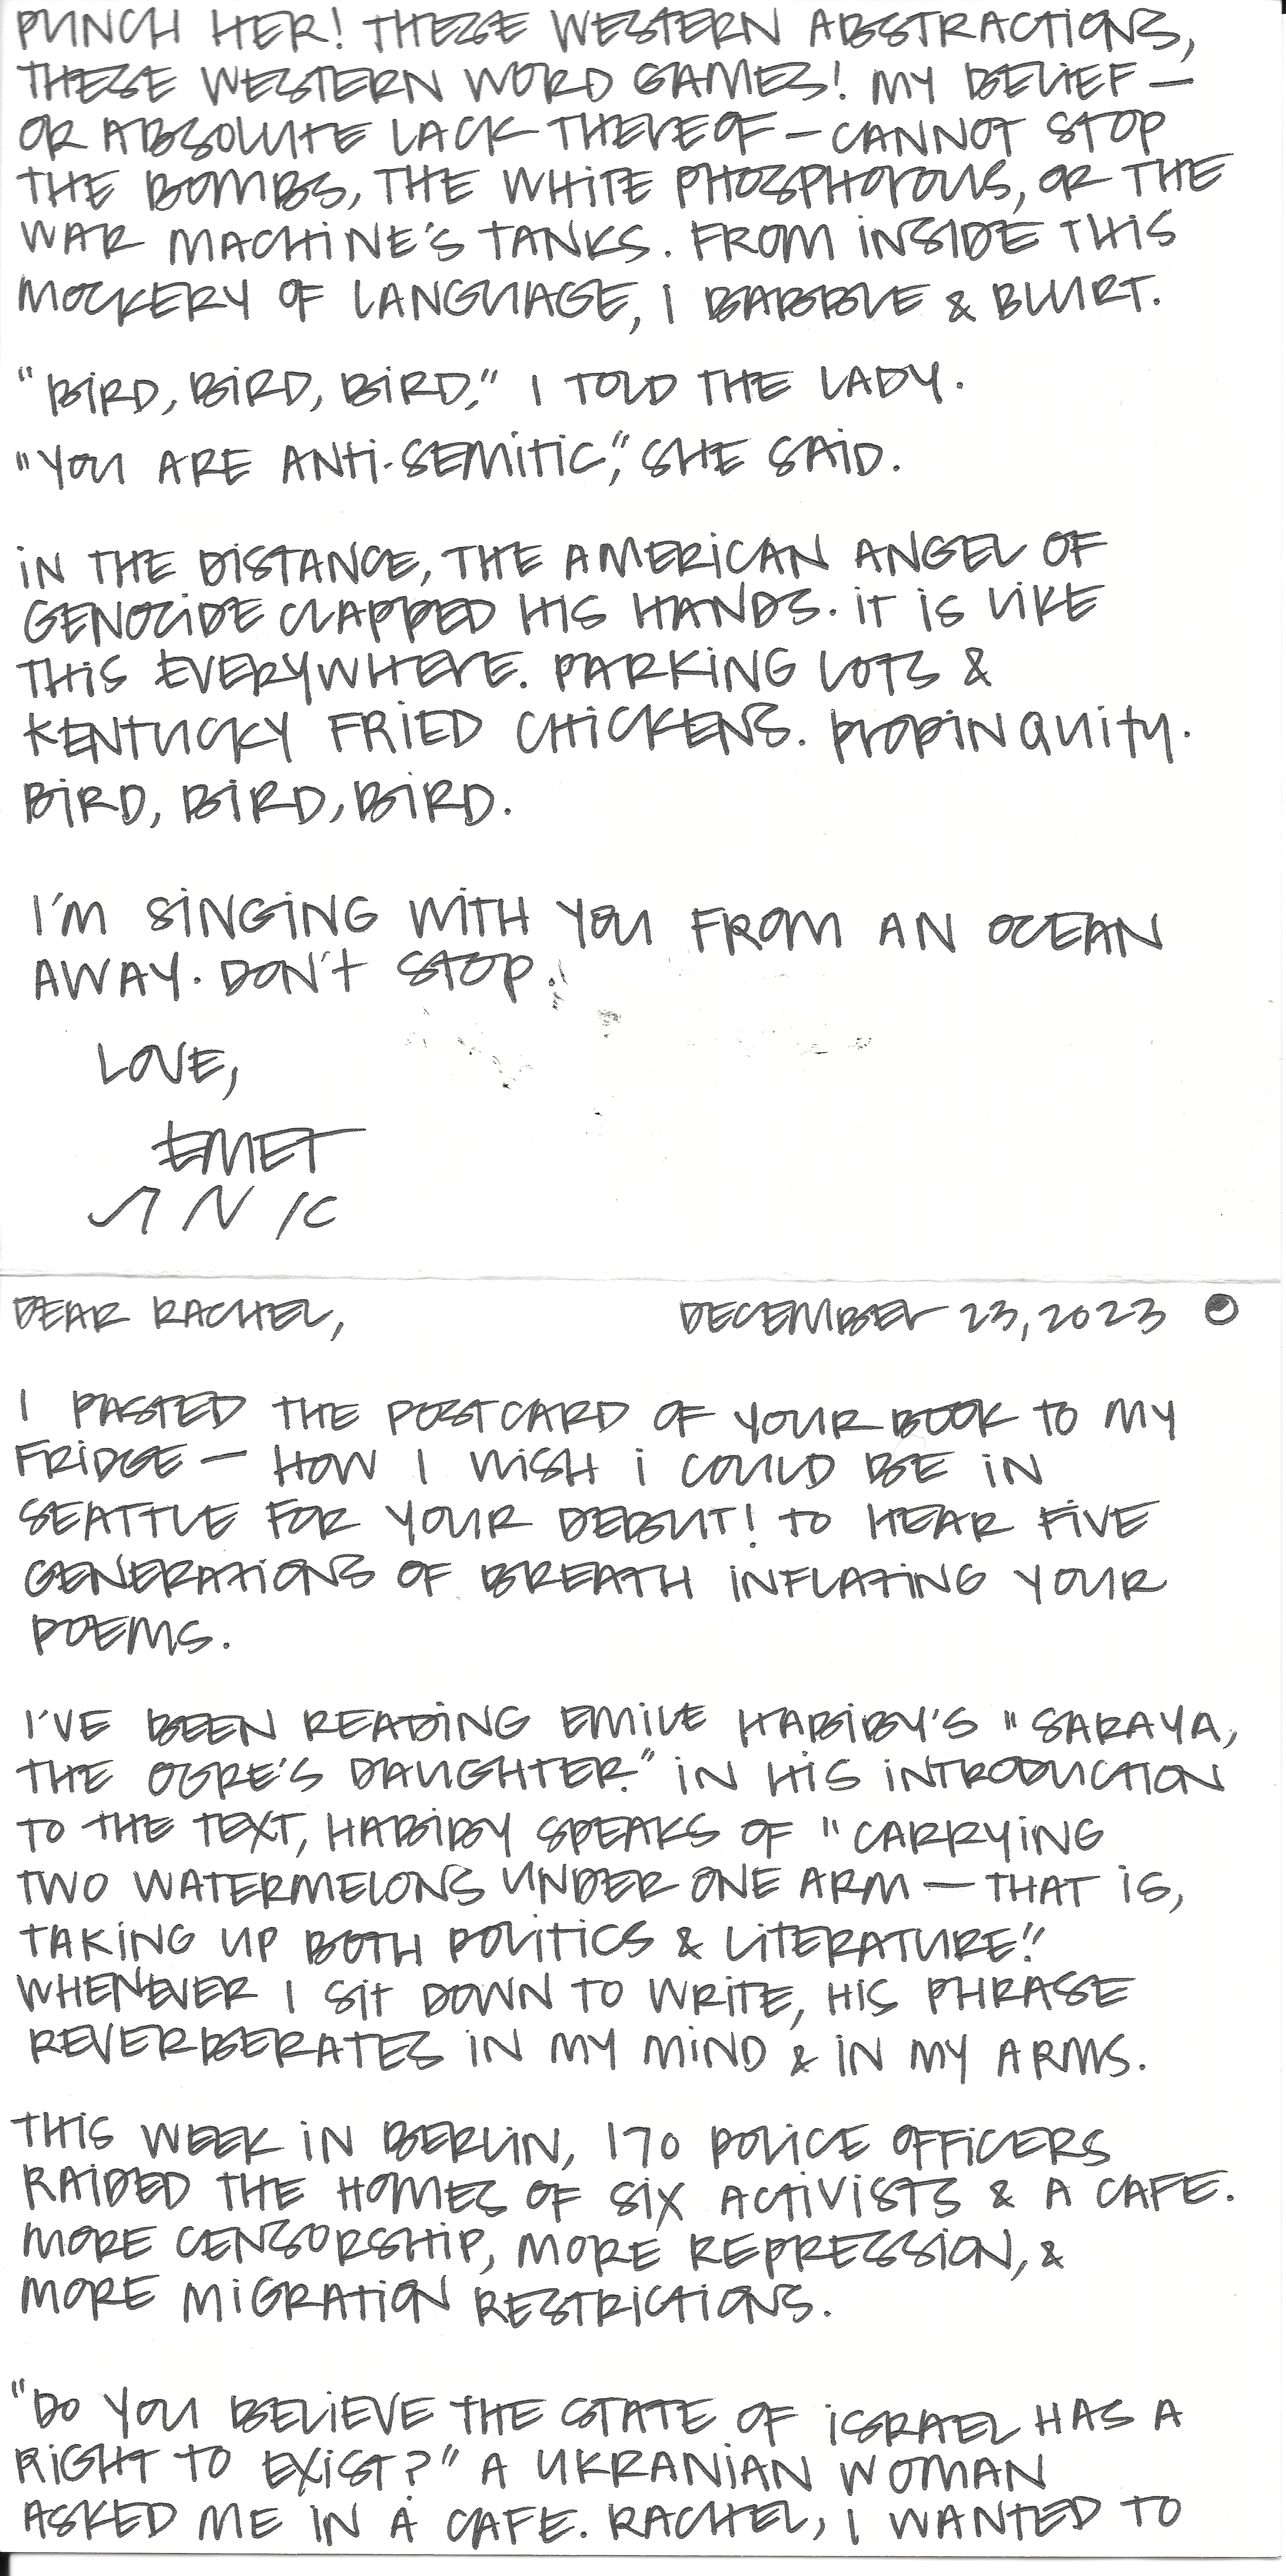 PUNCH HER! THESE WESTERN ABSTRACTIONS,
THESE WESTERN WORD GAMES! MY BELIEF —
OR ABSOLUTE LACK THEREOF — CANNOT STOP
THE BOMBS, THE WHITE PHOSPHOROUS, OR THE
WAR MACHINE'S TANKS. FROM INSIDE THIS
MOCKERY OF LANGUAGE, I BABBLE & BLURT.
"BIRD, BIRD, BIRD," I TOLD THE LADY.
"YOU ARE ANTI-SEMITIC," SHE SAID.
IN THE DISTANCE, THE AMERICAN ANGEL OF
GENOCIDE CLAPPED HIS HANDS. IT IS LIKE
THIS EVERYWHERE. PARKING LOTS &
KENTUCKY FRIED CHICKENS. PROPINQUITY.
BIRD, BIRD, BIRD.
I'M SINGING WITH YOU FROM AN OCEAN
AWAY. DON'T STOP.
LOVE,
EMET
DEAR RACHEL, DECEMBER 23, 2023
I PASTED THE POSTCARD OF YOUR BOOK TO MY
FRIDGE — HOW I WISH I COULD BE IN
SEATTLE FOR YOUR DEBUT! TO HEAR FIVE
GENERATIONS OF BREATH INFLATING YOUR
POEMS.
I'VE BEEN READING EMILE HABIBY'S "SARAYA,
THE OGRE'S DAUGHTER." IN HIS INTRODUCTION
TO THE TEXT, HABIBY SPEAKS OF "CARRYING
TWO WATERMELONS UNDER ONE ARM — THAT IS,
TAKING UP BOTH POLITICS & LITERATURE."
WHENEVER I SIT DOWN TO WRITE, HIS PHRASE
REVERBERATES IN MY MIND & IN MY ARMS.
THIS WEEK IN BERLIN, 170 POLICE OFFICERS
RAIDED THE HOMES OF SIX ACTIVISTS & A CAFE.
MORE CENSORSHIP, MORE REPRESSION, &
MORE MIGRATION RESTRICTIONS.
"DO YOU BELIEVE THE STATE OF ISRAEL HAS A
RIGHT TO EXIST?" A UKRANIAN WOMAN
ASKED ME IN A CAFE. RACHEL, I WANTED TO